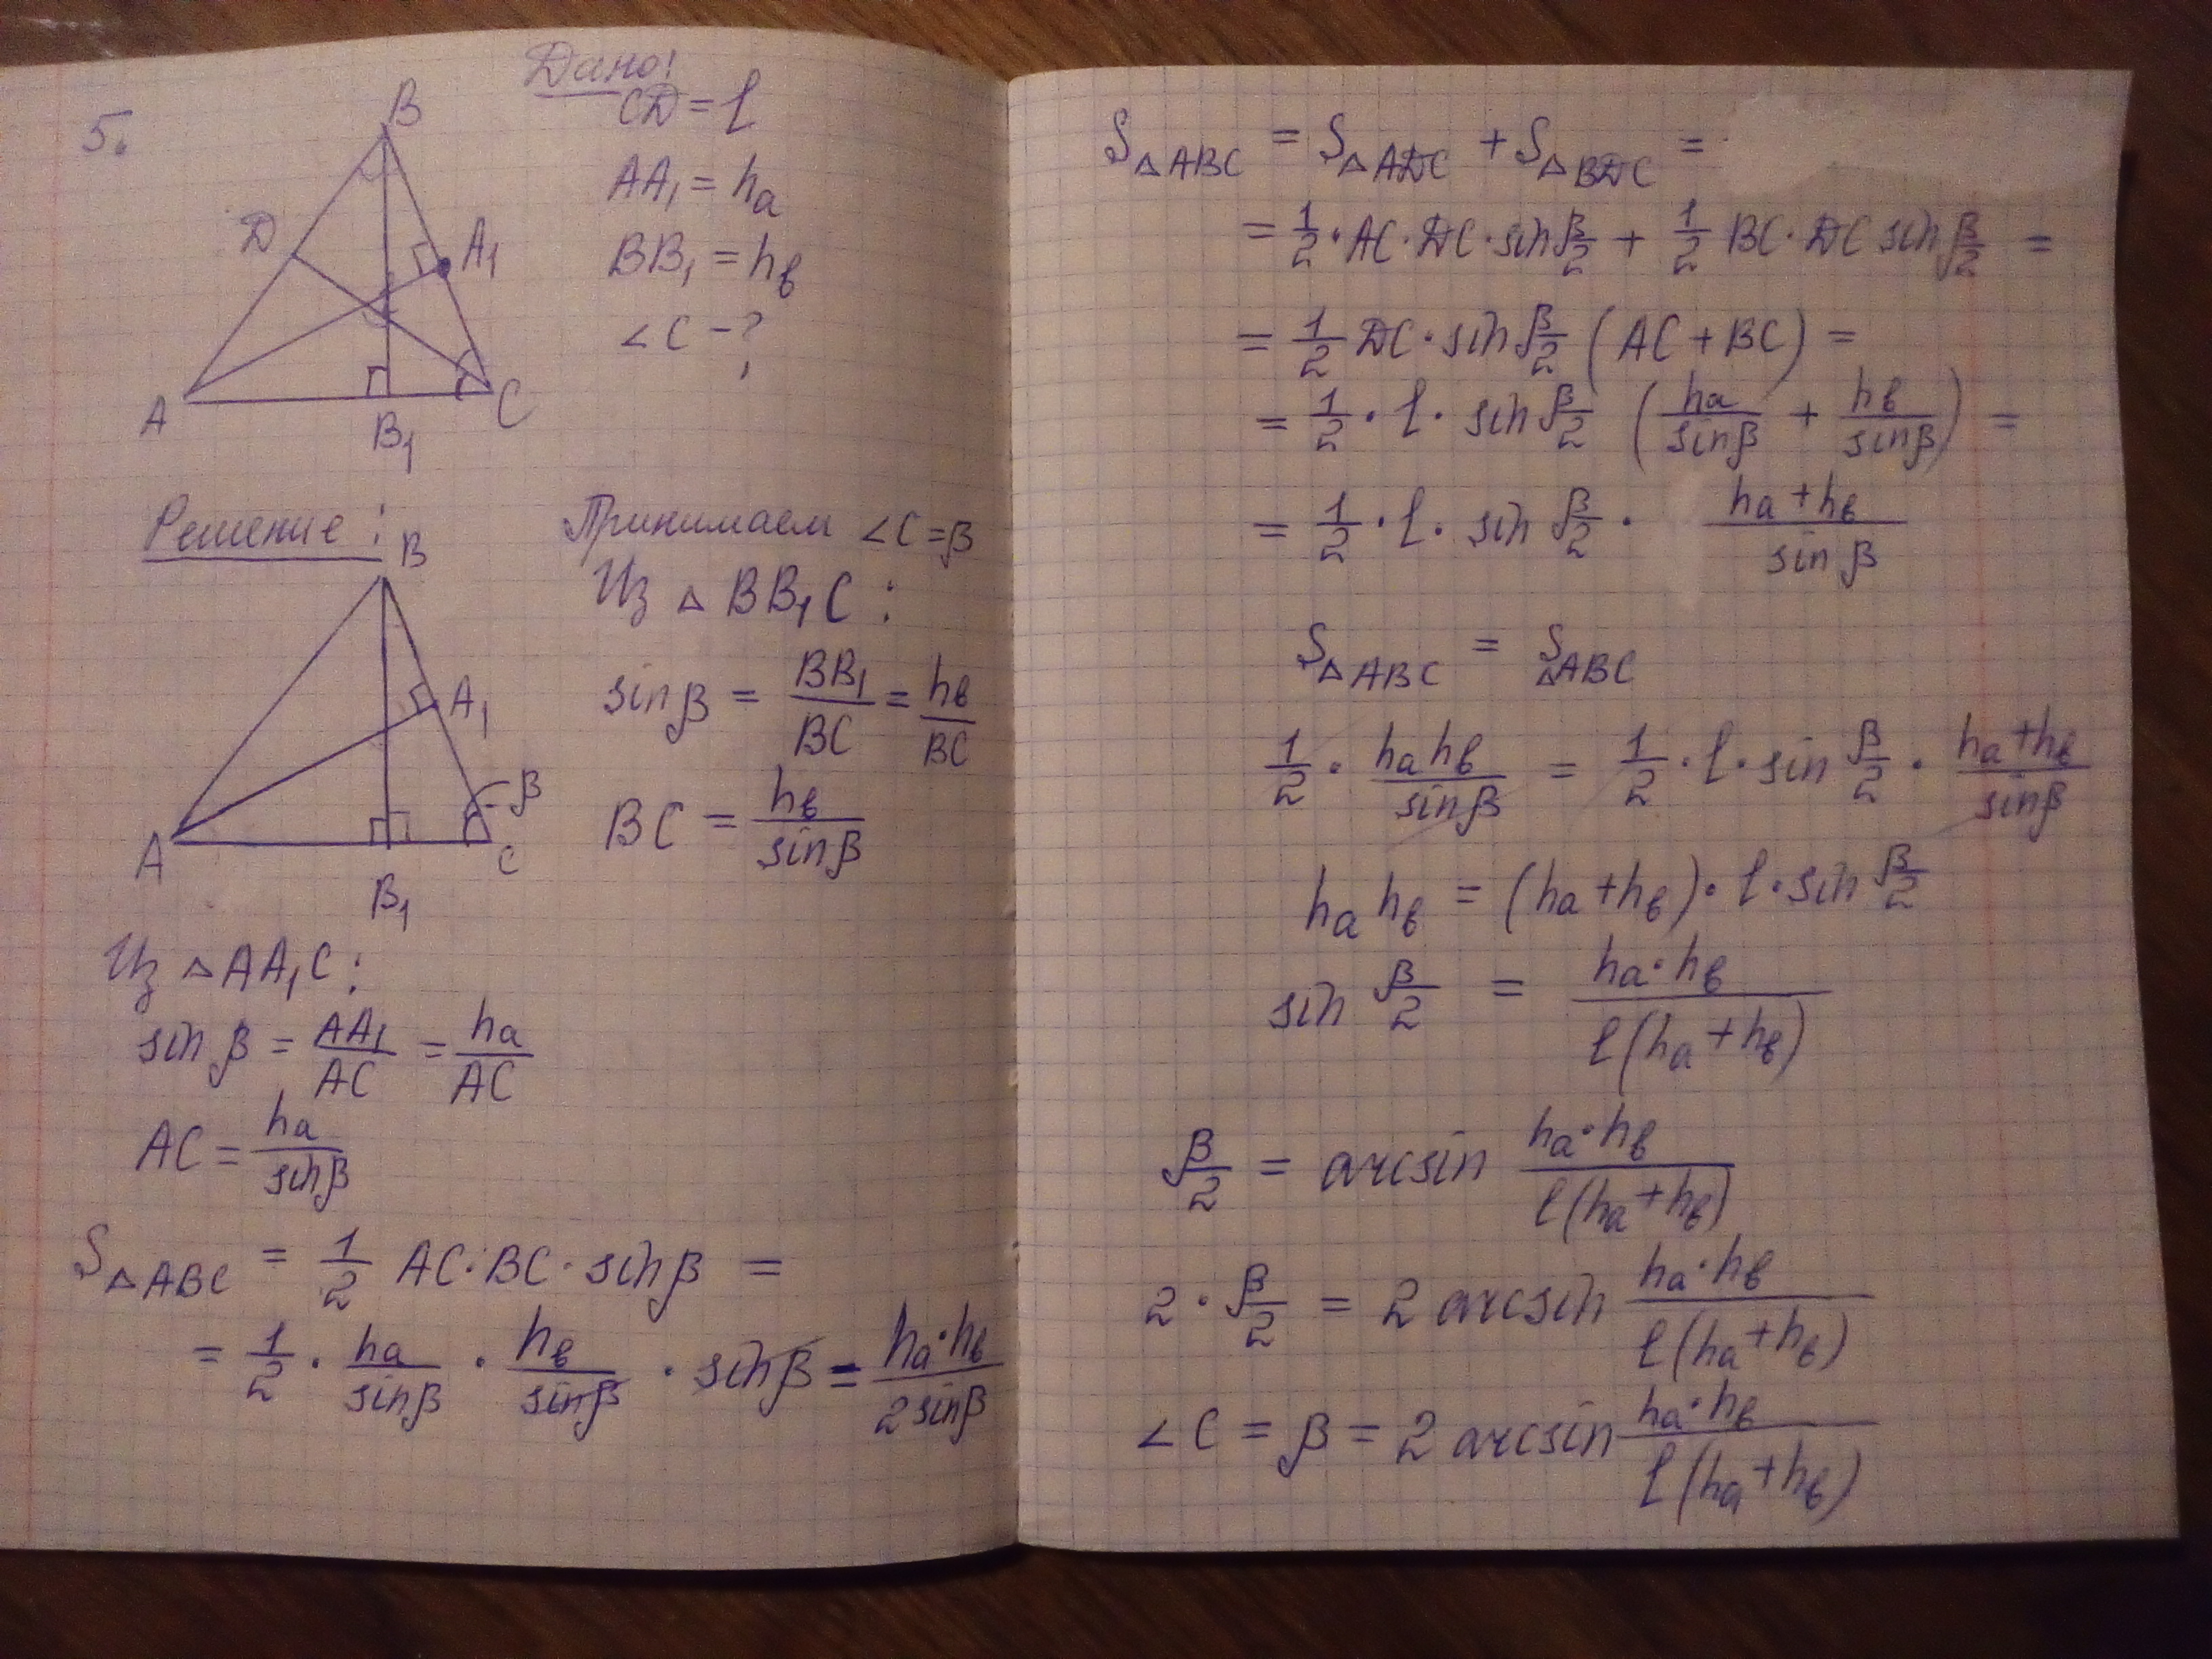 5.
Дано:
CD = l
AA₁ = hₐ
BB₁ = h_в
∠C - ?
B
D
A₁
A
B₁
C
Решение:
B
A₁
β
A
B₁
C
Принимаем ∠C = β
Из △BB₁C:
sin β = BB₁/BC = h_в/BC
BC = h_в/sin β
Из △AA₁C:
sin β = AA₁/AC = hₐ/AC
AC = hₐ/sin β
S△ABC = 1/2 AC · BC · sin β =
= 1/2 · hₐ/sin β · h_в/sin β · sin β = hₐ · h_в/2 sin β
S△ABC = S△ADC + S△BDC =
= 1/2 · AC · DC · sin β/2 + 1/2 BC · DC sin β/2 =
= 1/2 DC · sin β/2 (AC + BC) =
= 1/2 · l · sin β/2 (hₐ/sin β + h_в/sin β) =
= 1/2 · l · sin β/2 · hₐ + h_в/sin β
S△ABC = S△ABC
1/2 · hₐ h_в/sin β = 1/2 · l · sin β/2 · hₐ + h_в/sin β
hₐ h_в = (hₐ + h_в) · l · sin β/2
sin β/2 = hₐ · h_в/l(hₐ + h_в)
β/2 = arcsin hₐ · h_в/l(hₐ + h_в)
2 · β/2 = 2 arcsin hₐ · h_в/l(hₐ + h_в)
∠C = β = 2 arcsin hₐ · h_в/l(hₐ + h_в)